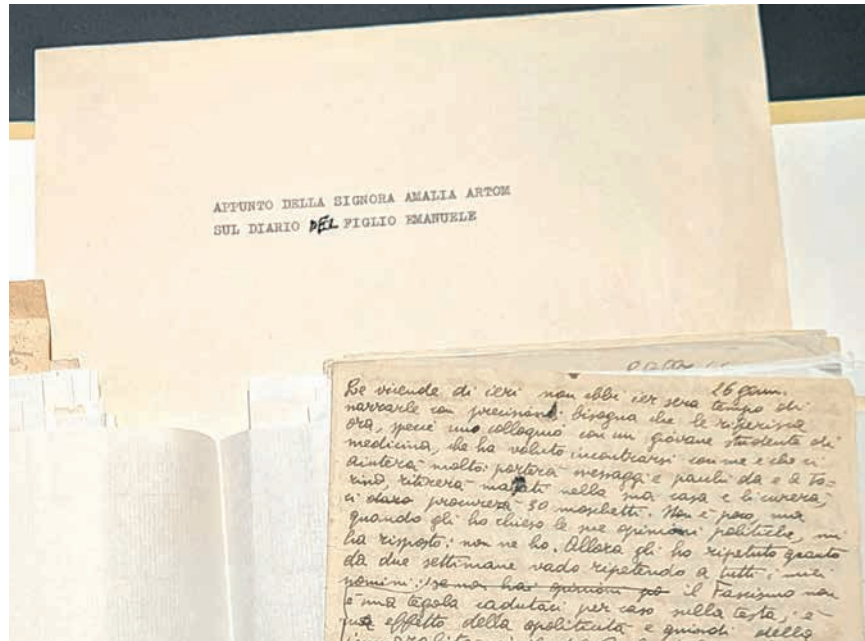 APPUNTO DELLA SIGNORA AMALIA ARTOM
SUL DIARIO DEL FIGLIO EMANUELE
26 genn.
Le vicende di ieri non ebbi ier sera tempo di
narrarle con precisione: bisogna che le riferisca
ora, specie uno colloquio con un giovane studente di
medicina, che ha voluto incontrarsi con me e che ci
aiuterà molto: porterà messaggi e pacchi da e a To-
rino, ritirerà malati nella sua casa e li curerà,
ci procurerà 30 moschetti. Non è poco, ma
quando gli ho chiesto le sue opinioni politiche, mi
ha risposto: non ne ho. Allora gli ho ripetuto quanto
da due settimane vado ripetendo a tutti i miei
uomini: se non hai opinioni il Fascismo non
è una tegola cadutaci per caso sulla testa; è
un effetto della apoliticità e quindi della